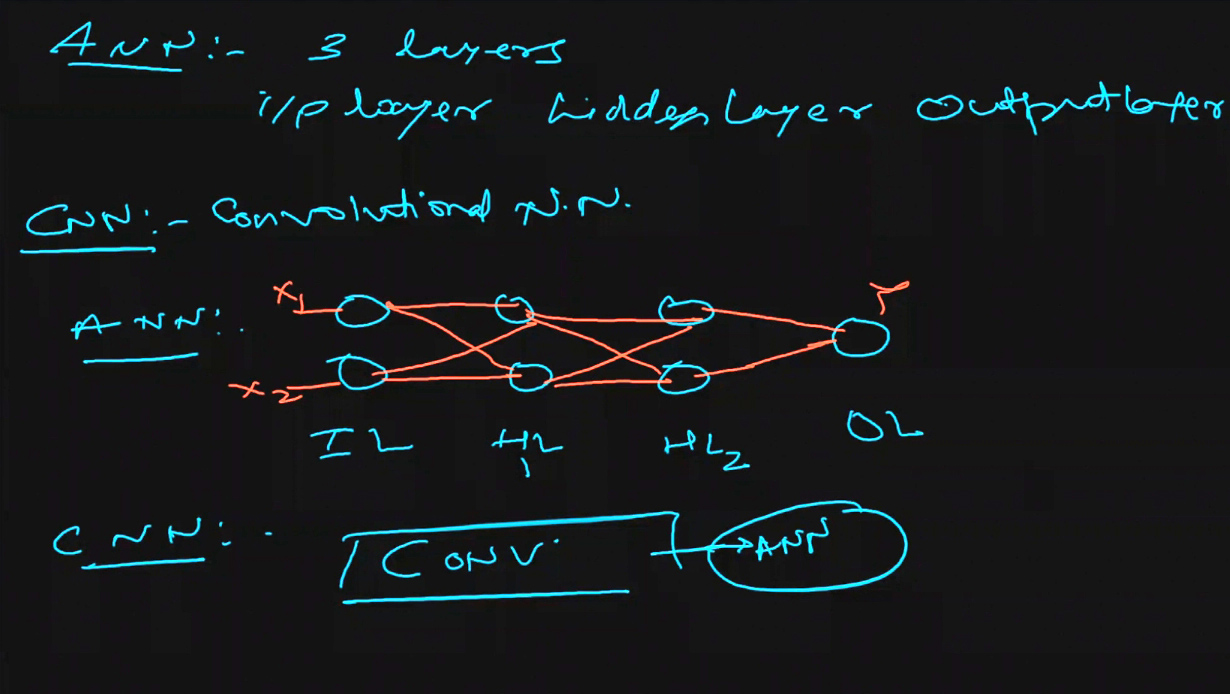 ANN:- 3 layers
i/p layer hidden Layer Output layer
CNN:- Convolutional N.N.
X1 Y
ANN:.
X2
IL HL1 HL2 OL
CNN:- CONV ANN